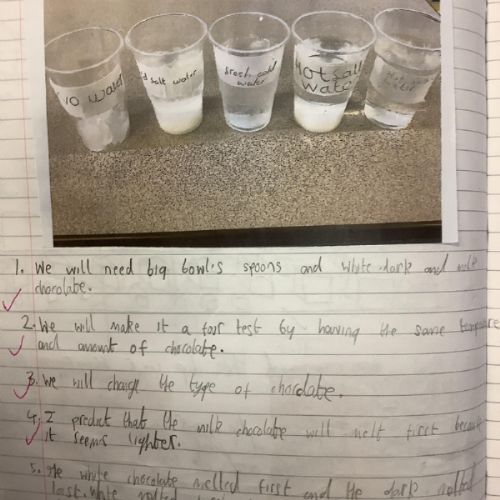 No water
salt water
fresh cold
water
Hot salt
water
1. We will need big bowl's spoons and white dark and milk
chocolate.
2. We will make it a fair test by having the same
and amount of chocolate.
3. We will change the type of chocolate.
4. I predict that the milk chocolate will melt first
it seems lighter.
5. The white chocolate melted first and the dark melted
last. White melted